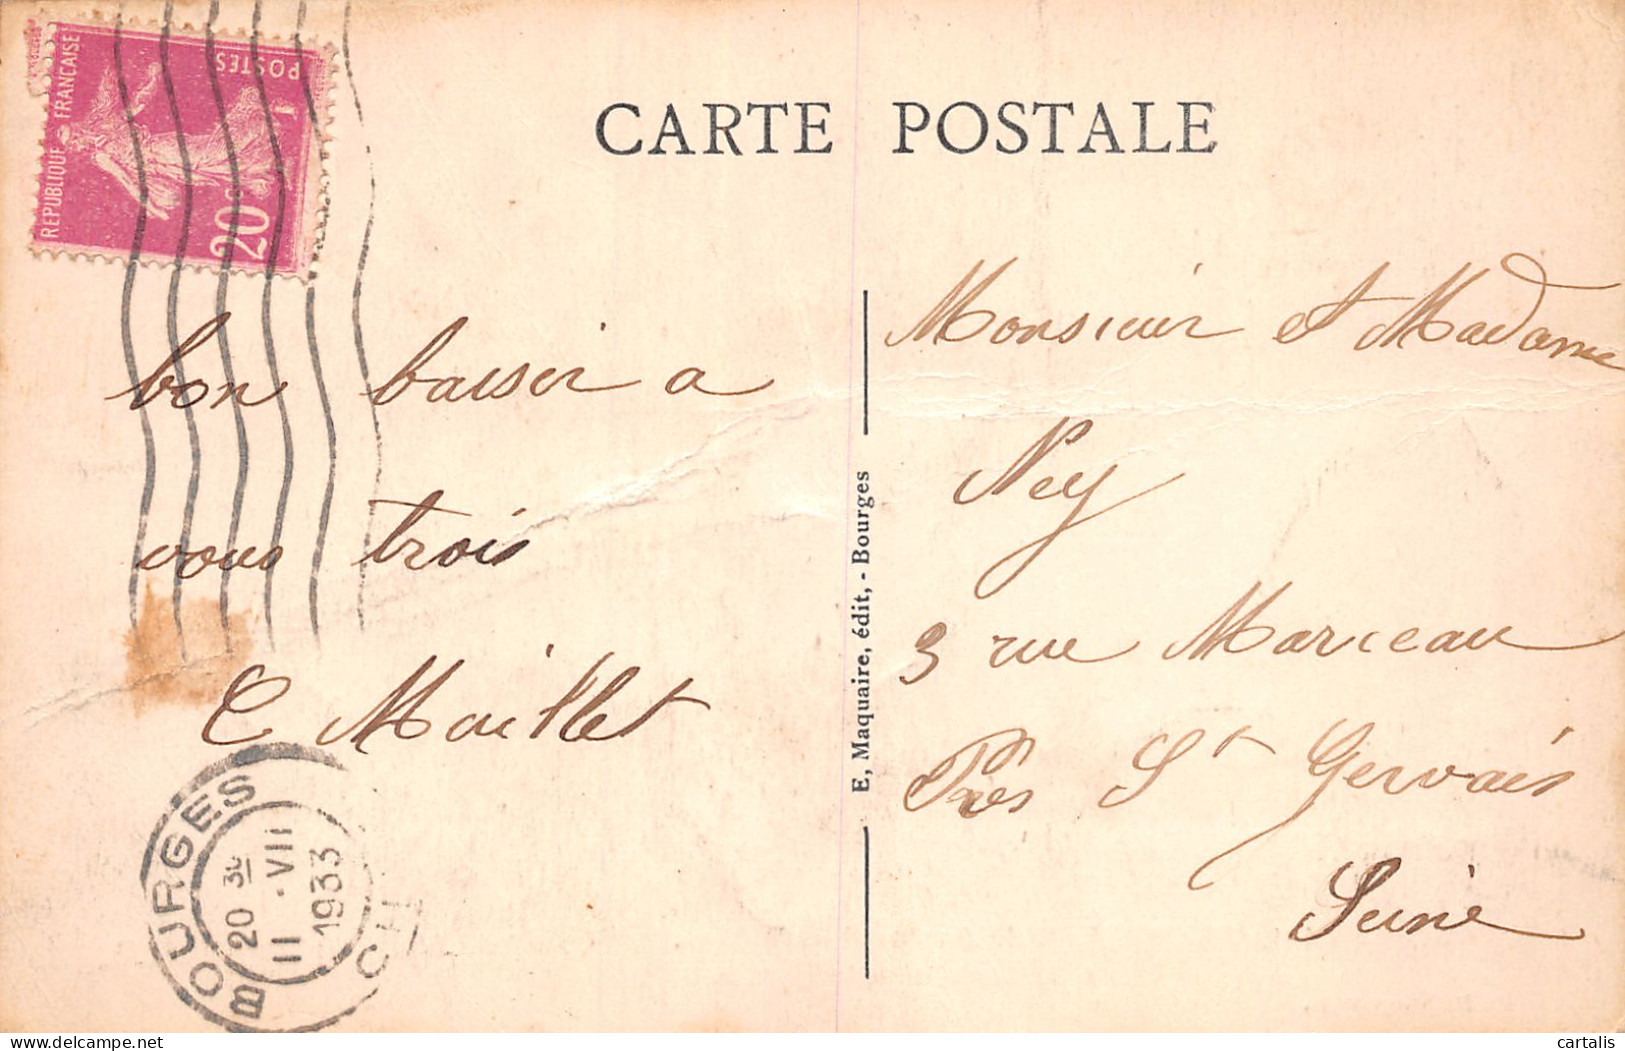 REPUBLIQUE FRANCAISE
POSTES
20c
CARTE POSTALE
bon baiser a
vous trois
C Maillet
Monsieur et Madame
Ney
3 rue Marceau
Près St Gervais
Seine
E, Maquaire, édit, - Bourges
BOURGES
CHER
20 30
11 -VII
1933
delcampe.net
cartalis